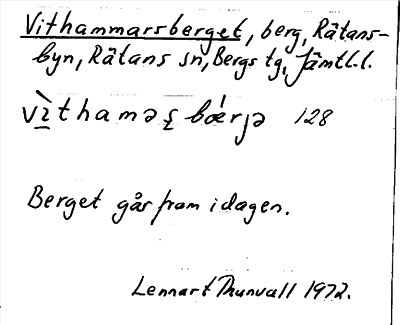 Vithammarsberget, berg, Rätans-
byn, Rätans sn, Bergs tg, Jämtl.l.
vì̲thamə ʂ bǽrjə 128
Berget går fram i dagen.
Lennart Thunvall 1972.